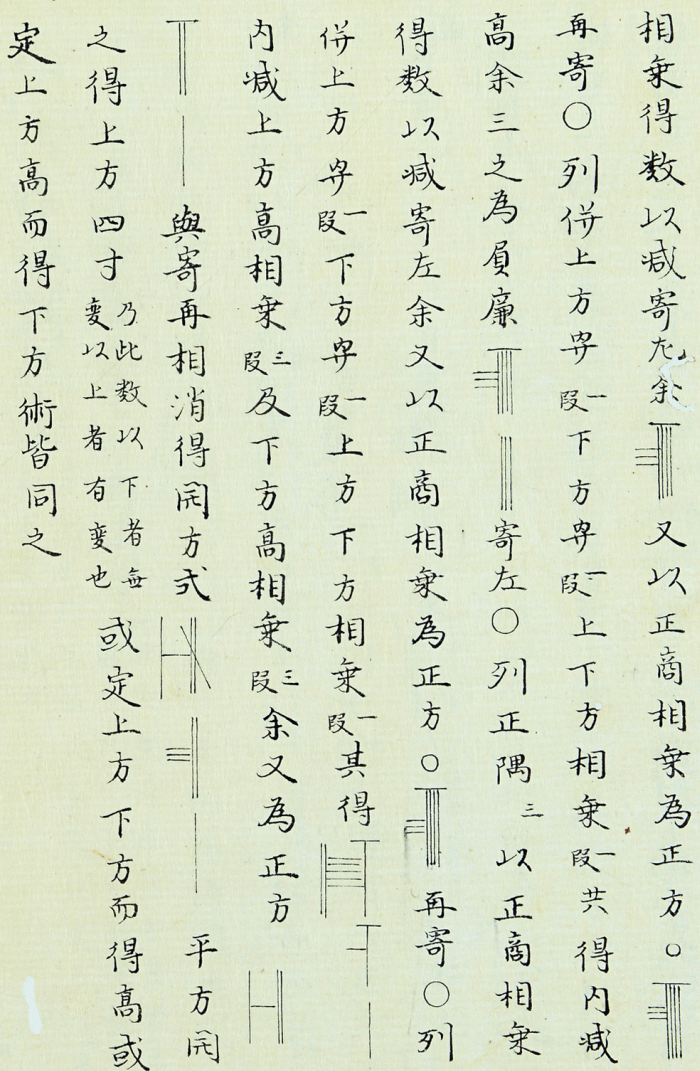 相乗得数以减寄左余又以正商相乗為正方○
再寄○列併上方冪一段下方冪一段上下方相乗一段共得内减
高余三之為負廉寄左○列正隅三以正商相乗
得数以减寄左余又以正商相乗為正方○再寄○列
併上方冪一段下方冪一段上方下方相乗一段其得
内减上方高相乗三段及下方高相乗三段余又為正方
與寄再相消得開方式平方開
之得上方四寸乃此数以下者無変以上者有変也或定上方下方而得高或
定上方高而得下方術皆同之